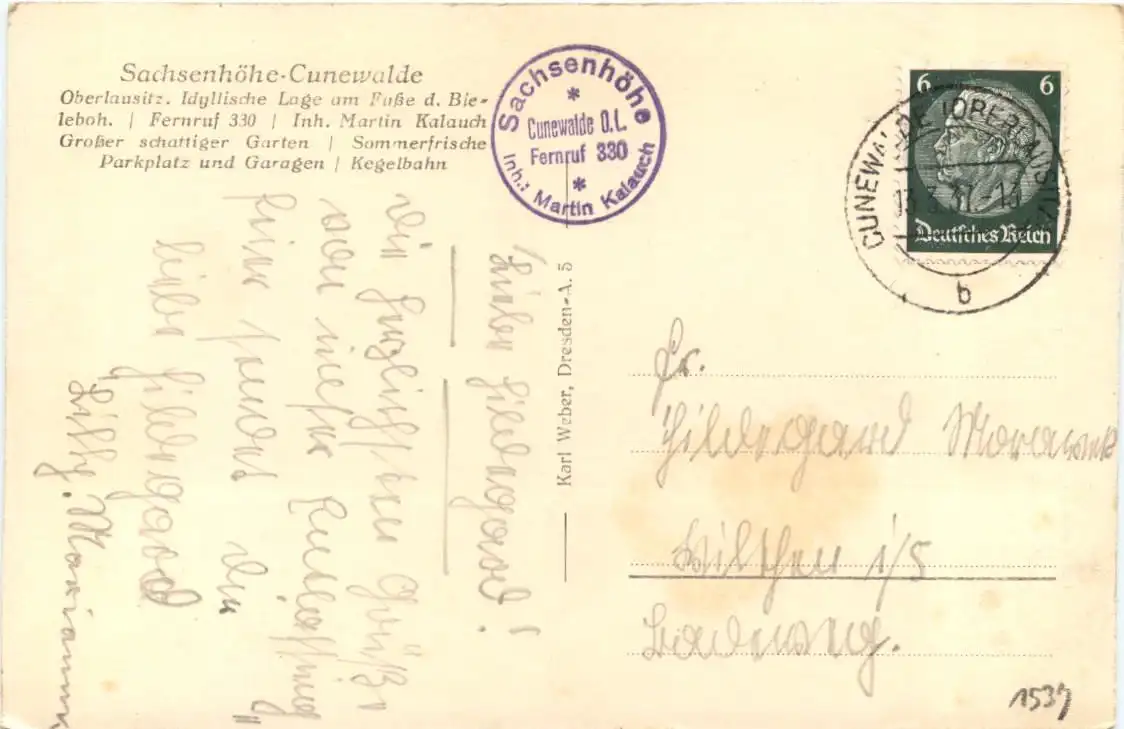 Sachsenhöhe-Cunewalde
Oberlausitz. Idyllische Lage am Fuße d. Bie-
leboh. | Fernruf 330 | Inh. Martin Kalauch
Großer schattiger Garten | Sommerfrische
Parkplatz und Garagen | Kegelbahn
Sachsenhöhe
Cunewalde O.L.
Fernruf 330
Inh.: Martin Kalauch
6 6
Deutsches Reich
CUNEWALDE (OBERLAUSITZ)
b
Liebe Hildegard!
Die herzlichsten Grüße
von
sendet dir
liebe Hildegard
Marianne
Karl Weber, Dresden-A. 5
Fr.
Hildegard
Wilthen i/S
1537